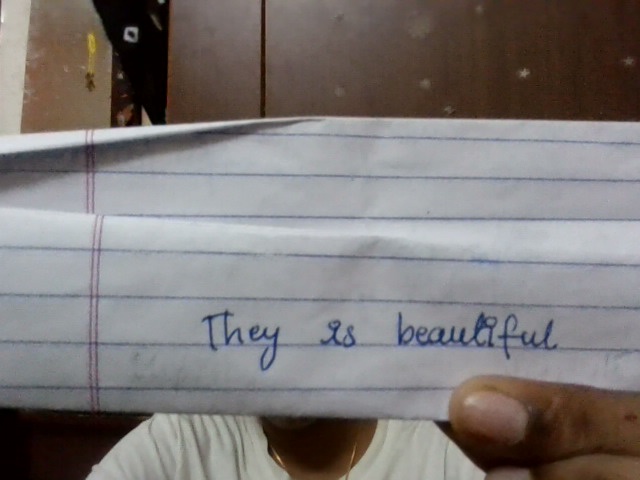 They is beautiful